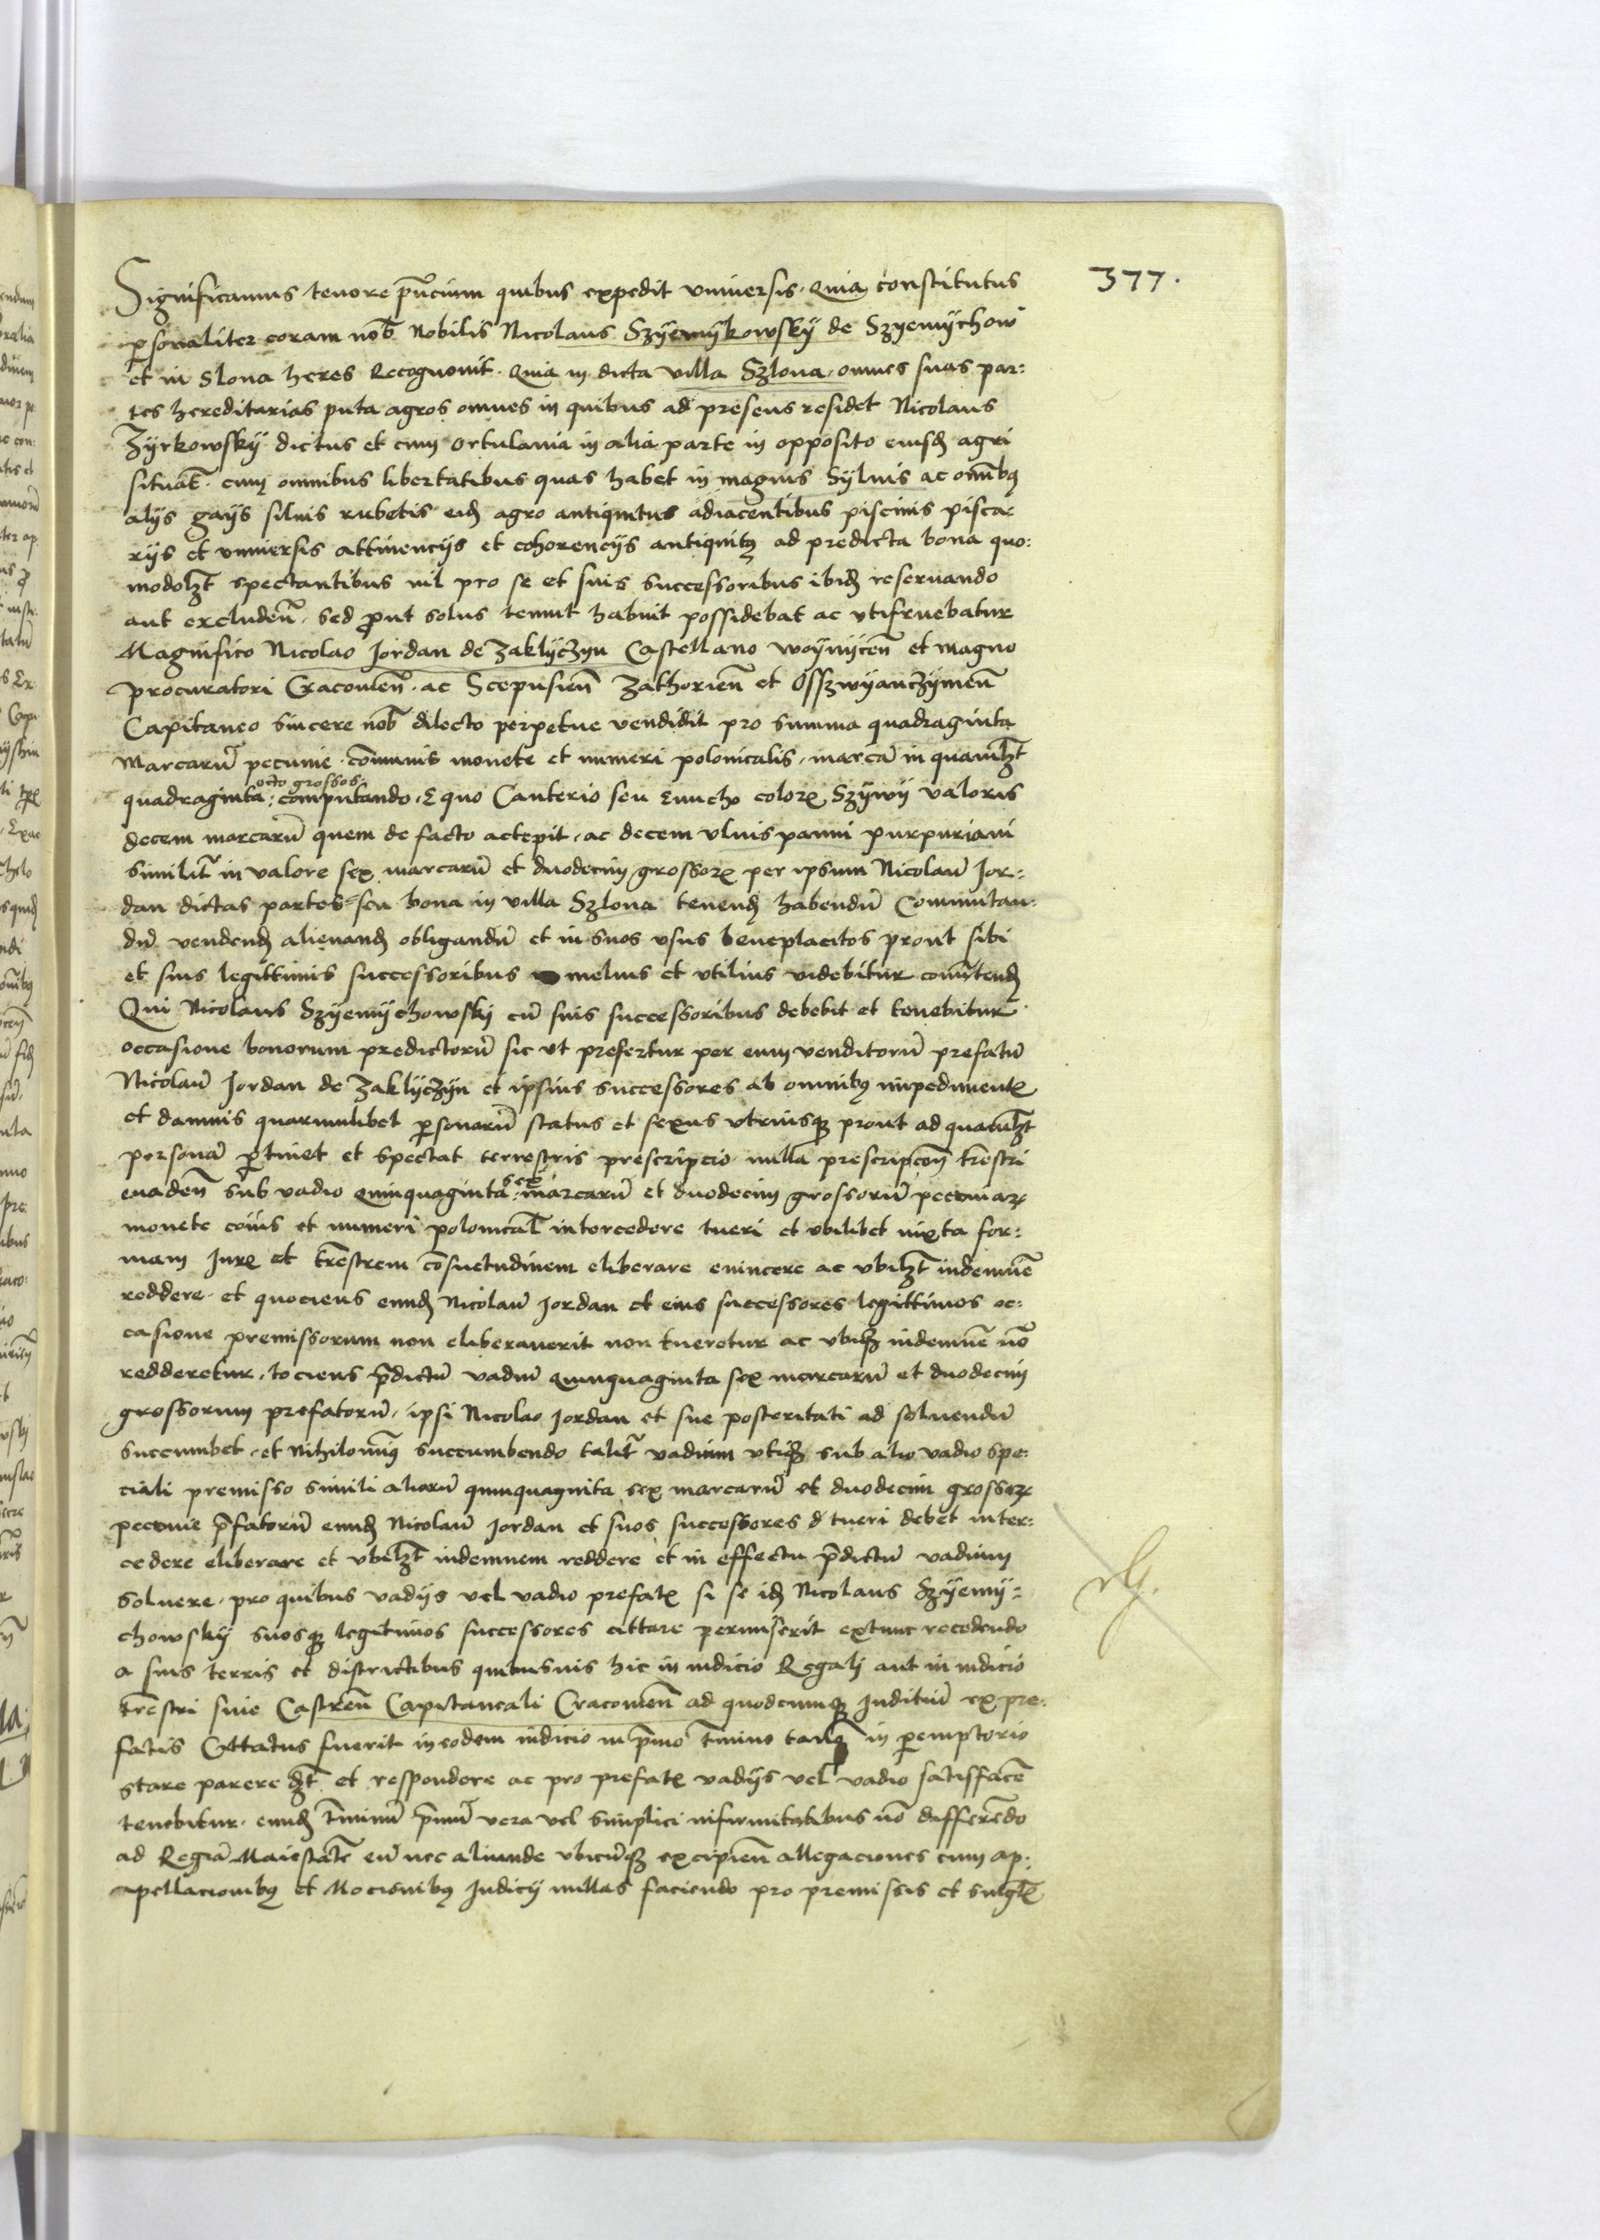 377.
Significamus tenore pñcium quibus expedit vniuersis. Quia constitutus
personaliter coram nob̃ Nobilis Nicolaus Szyemykowsky de Szyemychow
et in Slona heres Recognouit. Quia in dicta villa Szlona, omnes suas par:
tes hereditarias puta agros omnes in quibus ad presens residet Nicolaus
Zyrkowsky dictus et cum ortulania in alia parte in opposito eiusd agri
situat̃. cum omnibus libertatibus quas habet in magnis Syluis ac omĩbq
alijs gays siluis rubetis eid agro antiquitus adiacentibus piscinis pisca:
rijs et vniuersis attinencijs et cohorencijs antiquitq ad predicta bona quo:
modolzt spectantibus nil pro se et suis successoribus ibid reseruando
aut excludeñ. sed prout solus tenuit habuit possidebat ac vtifruebatur
Magnifico Nicolao Jordan de Zaklyczyn Castellano woynyceñ et magno
procuratori Cracouieñ. ac Scepusieñ Zathorieñ et Osszwyanczymeñ
Capitaneo sincere nob̃ dilecto perpetue vendidit pro summa quadraginta
Marcarũ pecunie. cõmunis monete et numeri polonicalis, marcã in quamlzt
quadraginta octo grossos computando. Equo Canterio seu Eunucho coloris Szywy valoris
decem marcarũ quem de facto accepit. ac decem vlnis panni purpuriani
similit̃ in valore sex marcarũ et duodecim grossorũ per ipsum Nicolaũ Jor:
dan dictas partes seu bona in villa Szlona tenend habendũ Commutan:
dũ vendend alienand obligandũ et in suos vsus beneplacitos prout sibi
et suis legittimis successoribus melius et vtilius videbitur conũtend
Qui Nicolaus Szyemychowski cũ suis successoribus debebit et tenebitur
occasione bonorum predictorũ sic vt prefertur per eum venditorũ prefatũ
Nicolaũ Jordan de Zaklyczyn et ipsius successores ab omnibq impedimentis
et damnis quarumlibet personarũ status et sexus vtriusq prout ad quamlzt
personã pertinet et spectat terrestris prescripcio nulla prescripcoñ trestri
euadeñ sub vadio quinquaginta sex marcarũ et duodecim grossorũ pecuniar
monete coĩuis et numeri polonical̃ intercedere tueri et vbilibet iuxta for:
mam Juris et trestrem cõsuetudinem eliberare euincere ac vbilzt indemnẽ
reddere. et quociens eund Nicolaũ Jordan et eius successores legittimos oc:
casione premissorum non eliberauerit non tueretur ac vbilz indemnẽ nõ
redderetur. tociens p̃dictũ vadiũ quinquaginta sex marcarũ et duodecim
grossorum prefatorũ, ipsi Nicolao Jordan et sue posteritati ad soluendũ
succumbet. et Nihilominq succumbendo talit̃ vadium vtiq sub alio vadio spe:
ciali premisso simili aliorũ quinquaginta sex marcarũ et duodecim grossor
pecunie p̃fatorũ eund Nicolaũ Jordan et suos successores d tueri debet inter:
cedere eliberare et vbilzt indemnem reddere et in effectu p̃dictũ vadium
soluere. pro quibus vadijs vel vadio prefatis si se id Nicolaus Szyemy:
chowsky suosq legitimos successores cittare permiserit extunc recedendo
a suis terris et districtibus quibusuis hic in iudicio Regali aut in iudicio
trestri siue Castreñ Capitaneali Cracouieñ ad quodcumq Juditiũ ex pre:
fatis Cittatus fuerit in eodem iudicio in p̃mo t̃mino tanq in peremptorio
stare parere dzt et respondere ac pro prefatis vadijs vel vadio satisfacẽ
tenebitur. eund t̃minũ p̃mũ vera vel simplici infirmitatibus nõ differẽdo
ad Regiã Maiestatẽ eũ nec aliunde vbicũq excipieñ allegaciones cum ap:
apellacionibq et Mocionibq Judicij nullas faciendo pro premissis et singlis